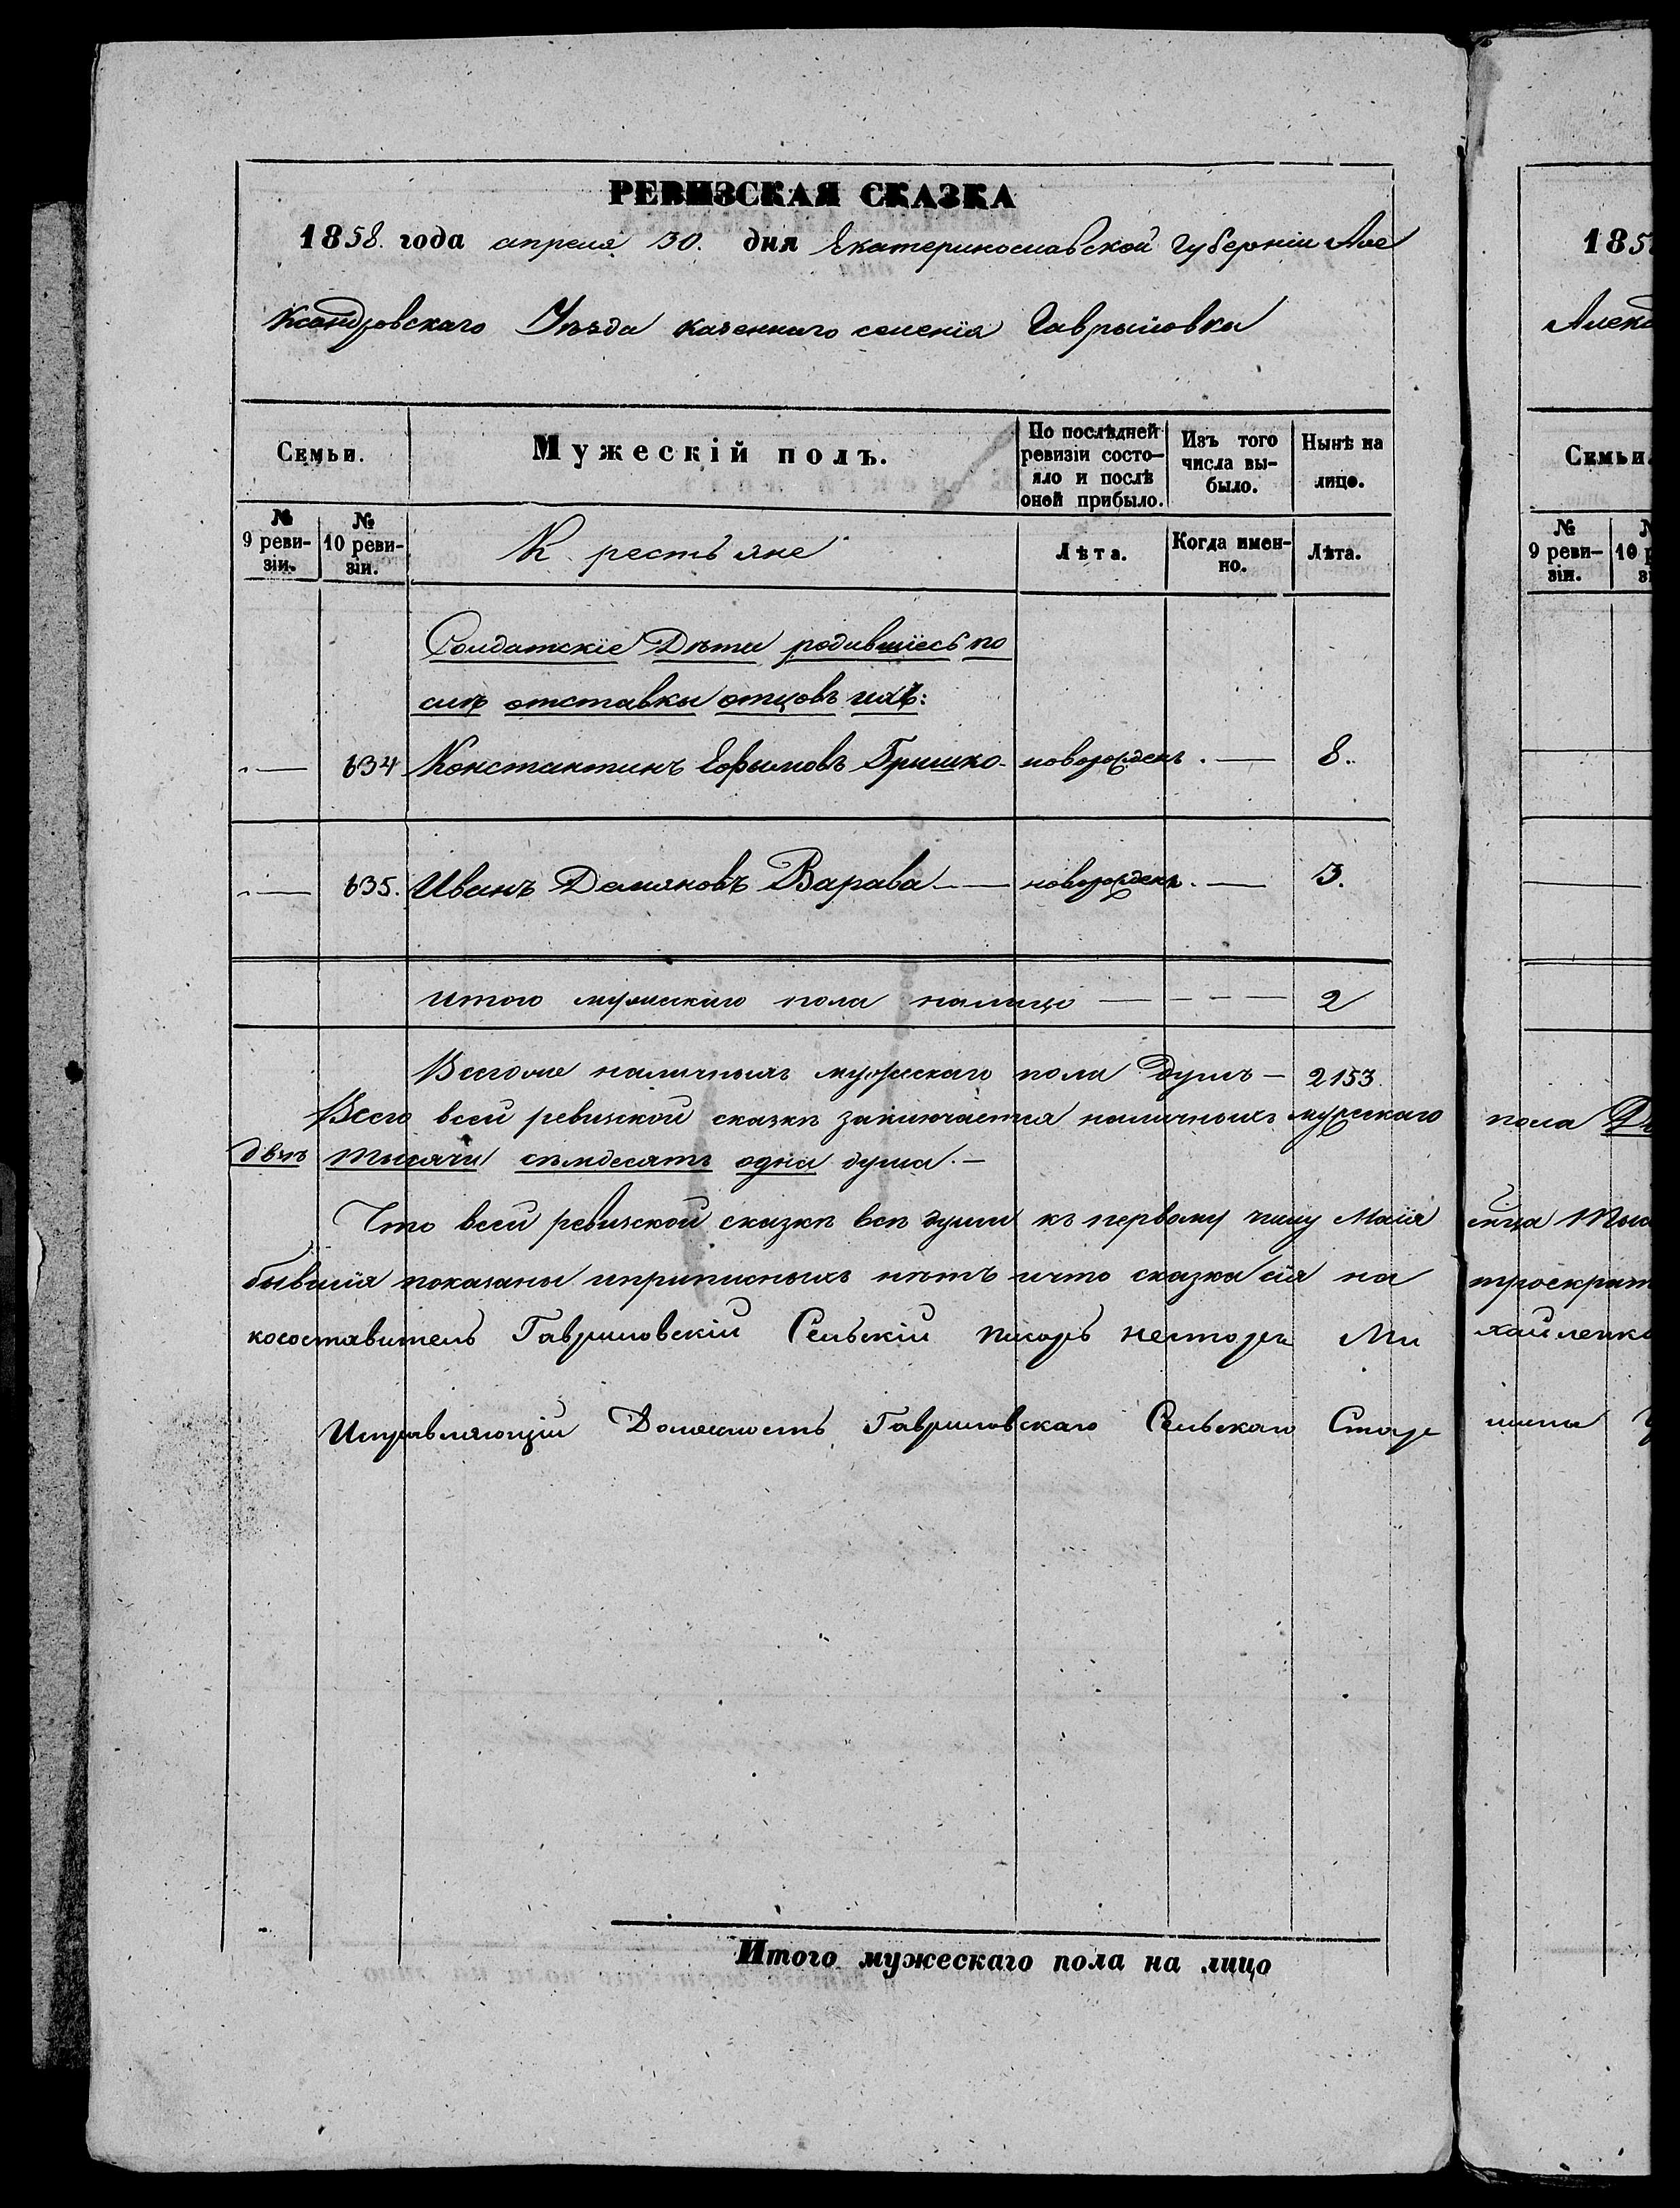 РЕВИЗСКАЯ СКАЗКА
1858. года апреля 30. дня Екатеринославской Губерніи Але
ксандровскаго Уѣзда казеннаго селенія Гаврыловки
Семьи.
Мужескій полъ.
По послѣдней ревизіи состо-яло и послѣ оной прибыло.
Изъ того числа вы-было.
Нынѣ на лицо.
№ 9 реви-зіи.
№ 10 реви-зіи.
Крестьяне
Лѣта.
Когда имен-но.
Лѣта.
Солдатскіе Дѣти родившіесь по
слѣ отставки отцовъ ихъ:
634 Константинъ Ефымовъ Гришко новорожденъ. — 8.
635. Иванъ Демяновъ Варава — новорожденъ. — 3.
итого мужескаго пола налицо — — — 2
Всегоже наличныхъ мужескаго пола душъ — 2153
Всего всей ревизской сказкѣ заключается наличныхъ мужескаго
двѣ тысячи сѣмдесятъ одна душа. —
Что всей ревизской сказкѣ всѣ души къ первому числу Маія
бывшія показаны иприписныхъ нѣтъ ичто сказка сія на
косоставитель Гавриловскій Сельскій писарь Несторъ Ми
Исправляющій Должность Гавриловскаго Сельскаго Стар
Итого мужескаго пола на лицо
185
Алекс
Семьи.
№ 9 реви-зіи.
пола
троекрат
хайленко
шины